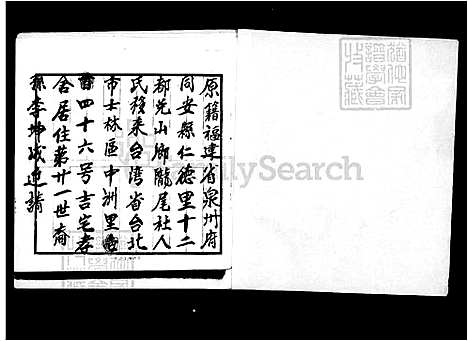 原籍福建省泉州府
同安縣仁德里十二
都兜山脚隴尾社人
氏移來台湾省台北
市士林區中洲里
四十六号吉宅孝
舍居住第廿一世裔
孫李坤成迎請
FamilySearch